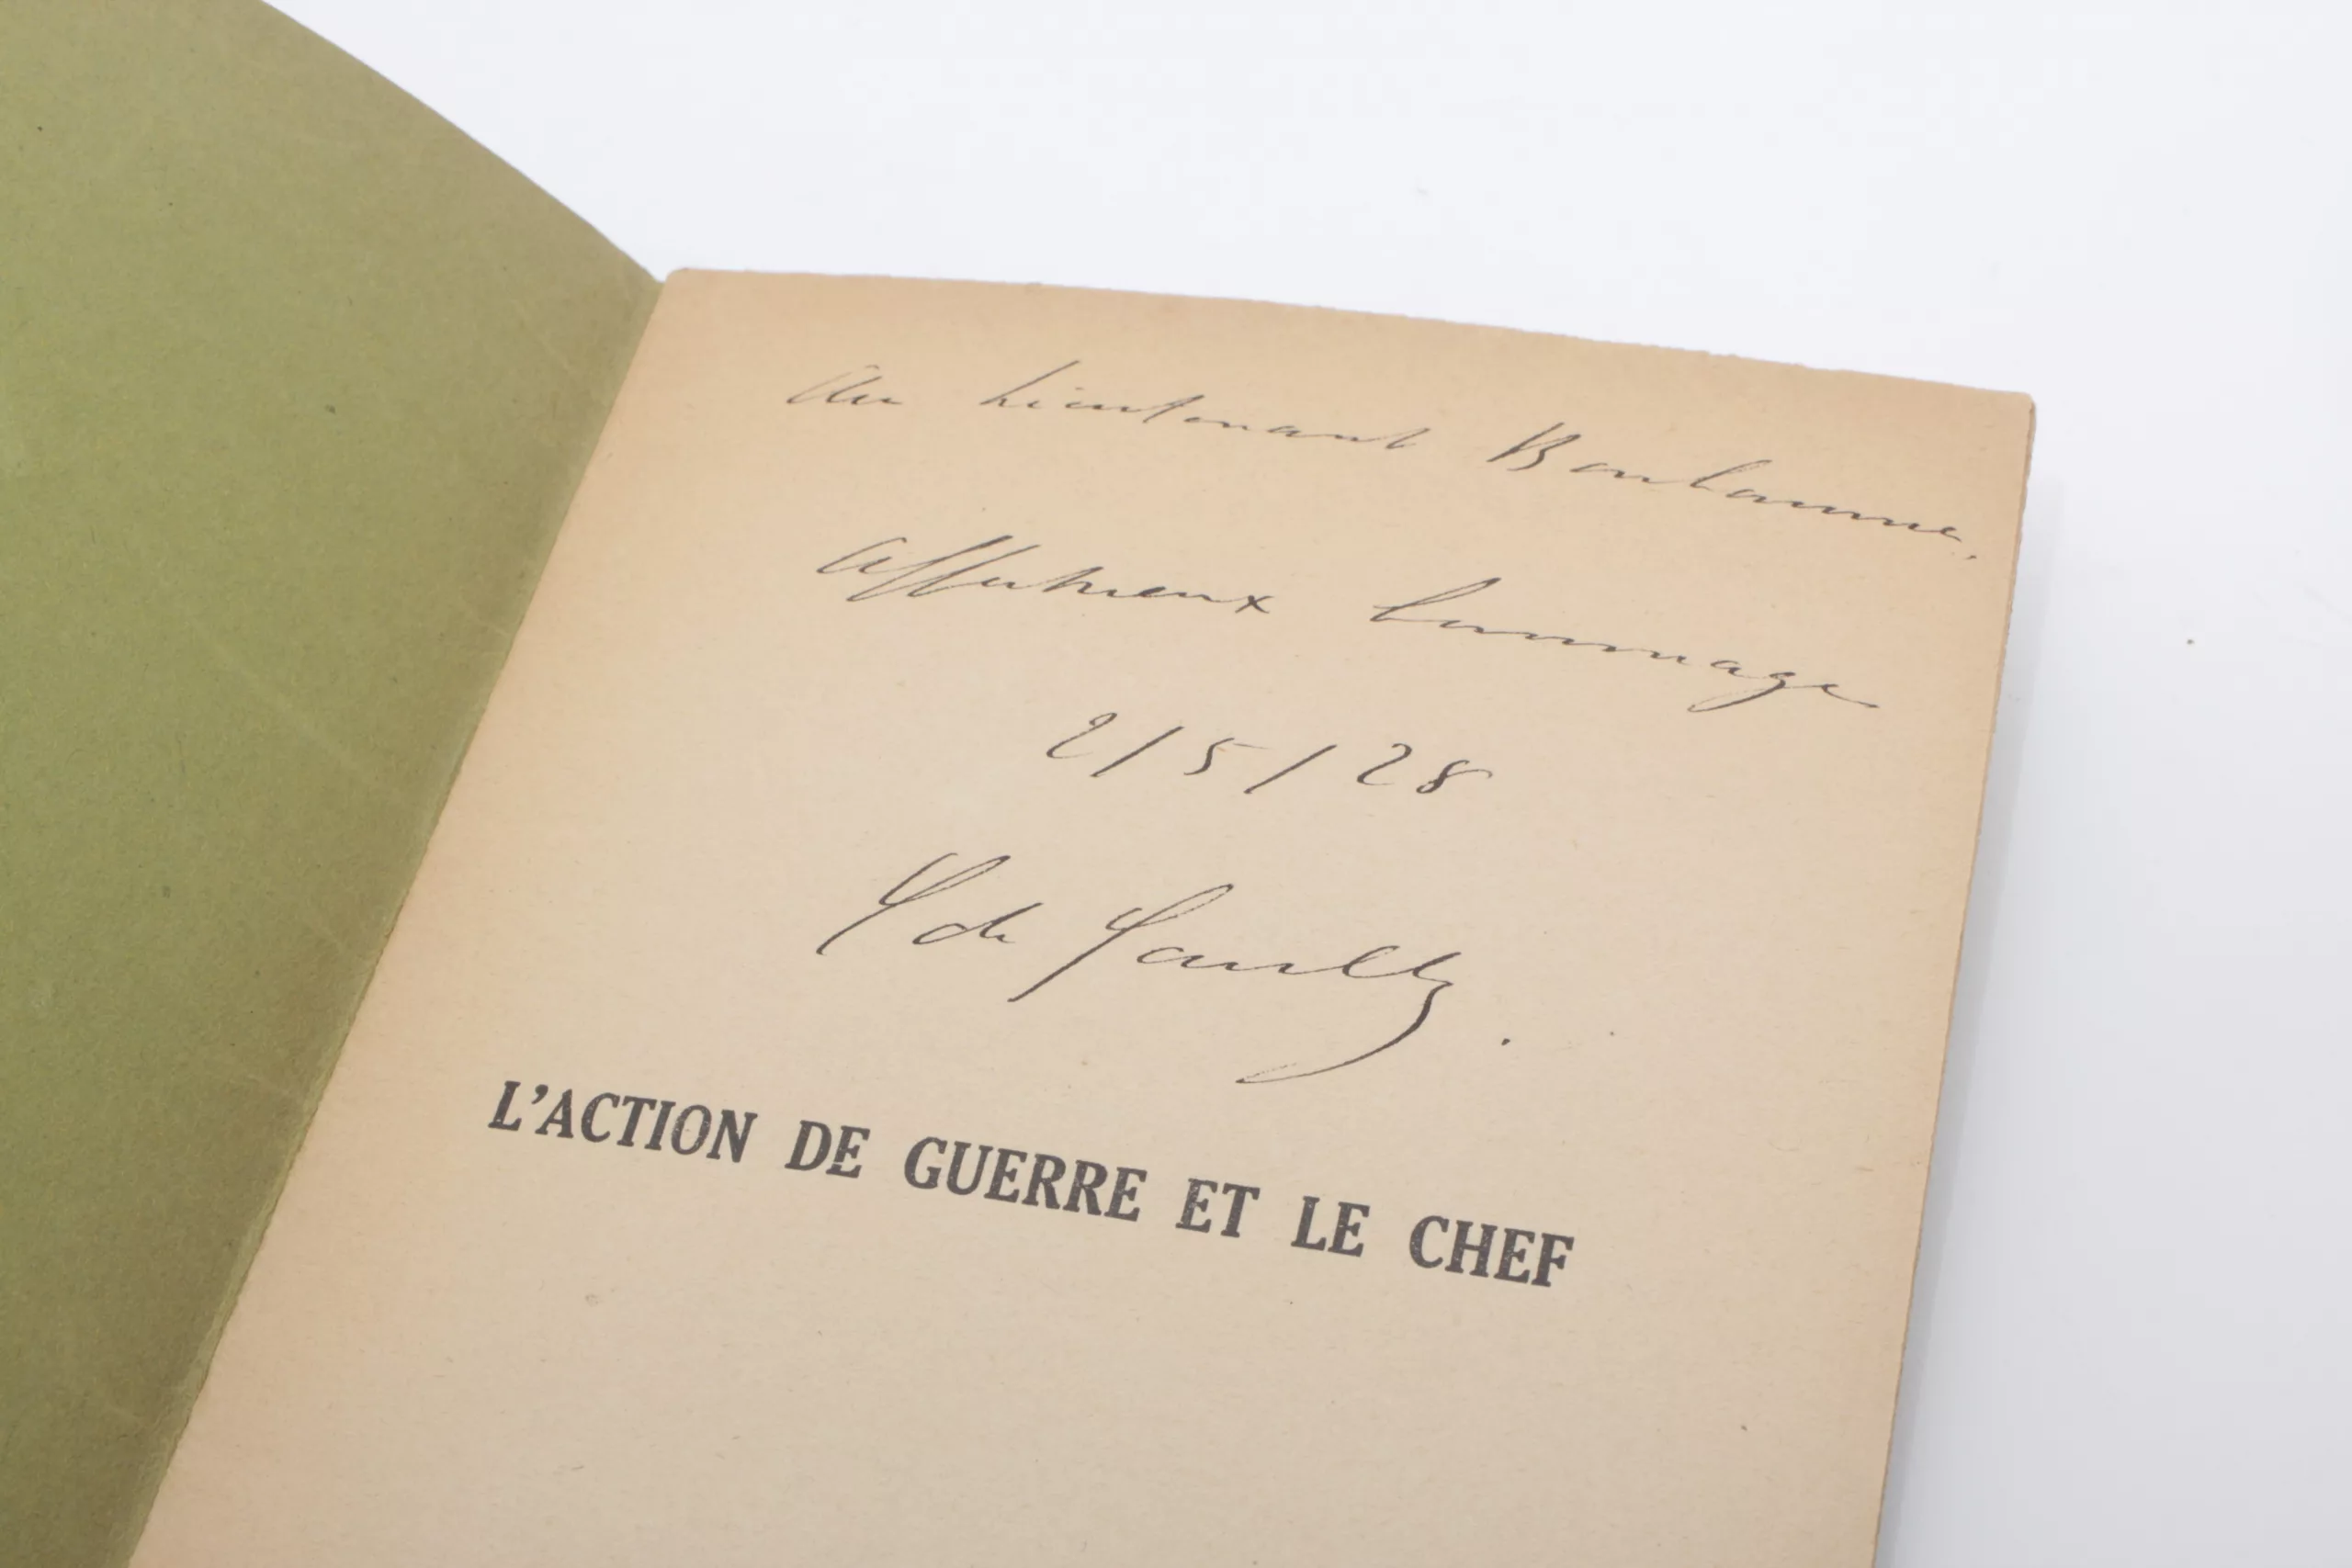 Au Lieutenant
affectueux hommage
2/5/28
C de Gaulle.
L'ACTION DE GUERRE ET LE CHEF